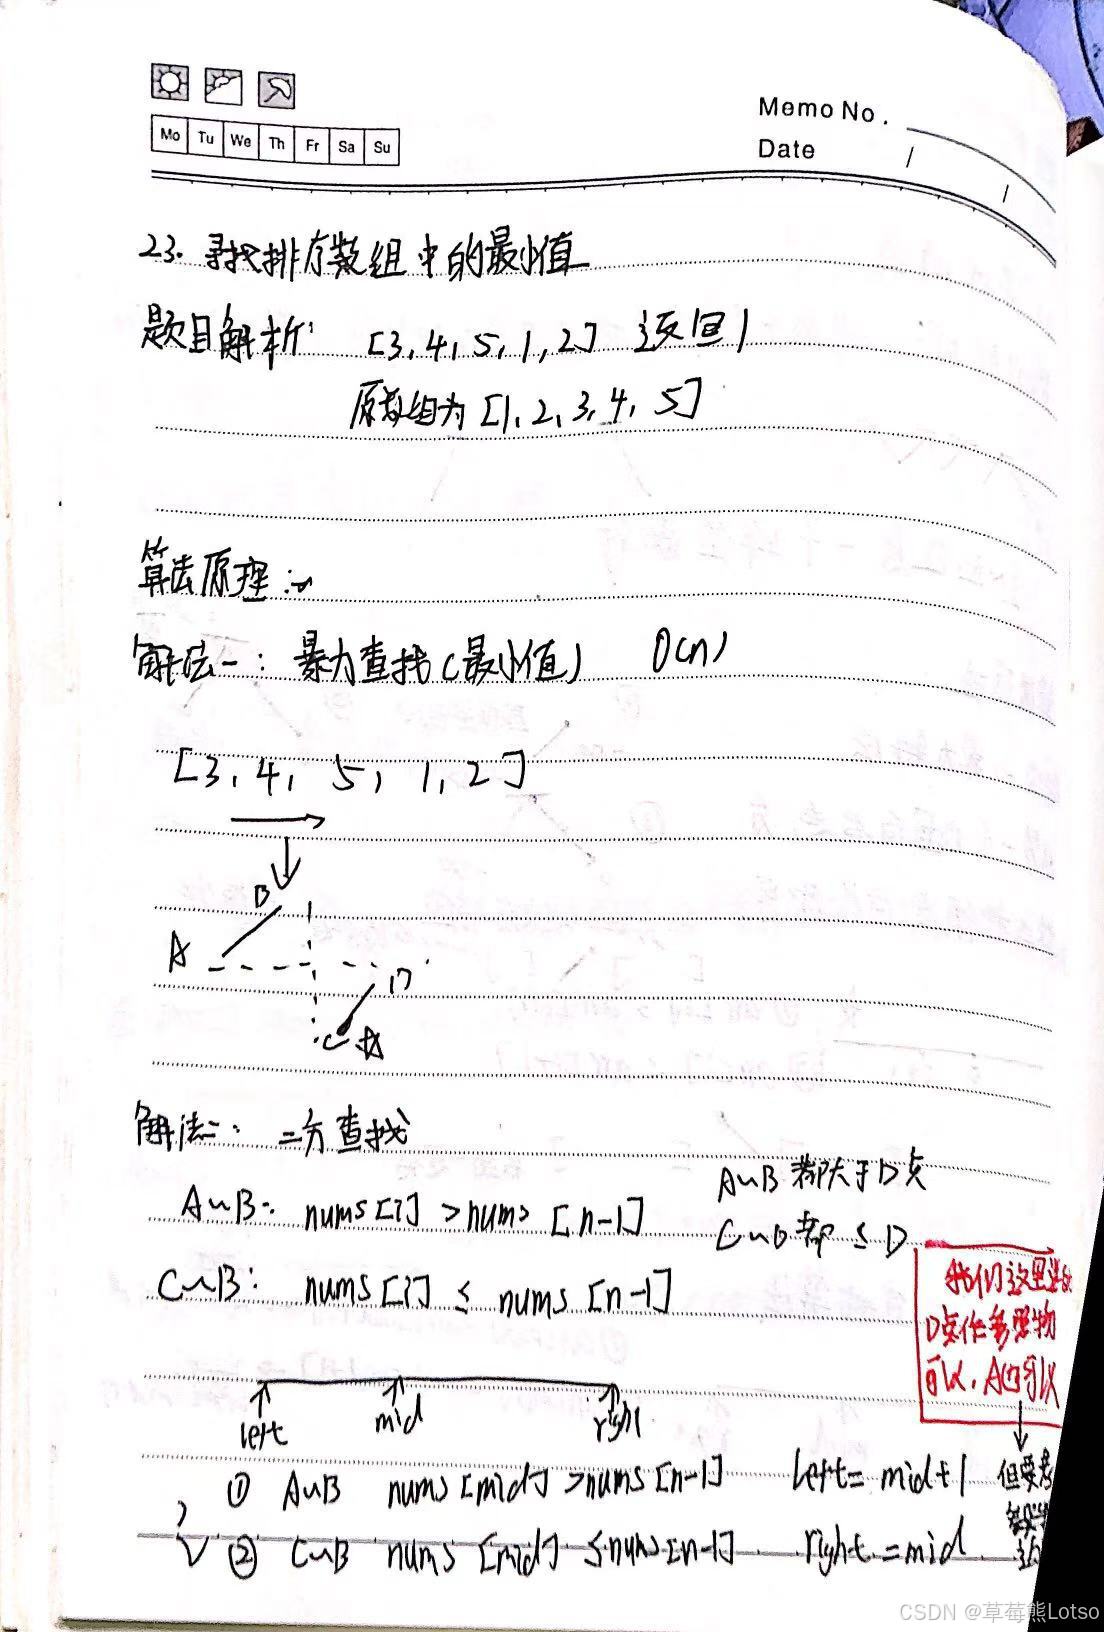 Memo No.
Mo Tu We Th Fr Sa Su
Date / /
23. 寻找排序数组中的最小值
题目解析: [3,4,5,1,2] 返回1
原数组为[1,2,3,4,5]
算法原理:
解法一: 暴力查找(最小值) O(n)
[3,4,5,1,2]
B
A
D
C
解法二: 二分查找
A~B: nums[i] > nums[n-1]
A~B都大于D点
C~D都≤D
C~B: nums[i] ≤ nums[n-1]
我们这里选
D点作参照物
可以,A也可以
left mid right
① A~B nums[mid] > nums[n-1] left = mid+1
但要考
② C~B nums[mid] ≤ nums[n-1] right = mid
CSDN @草莓熊Lotso